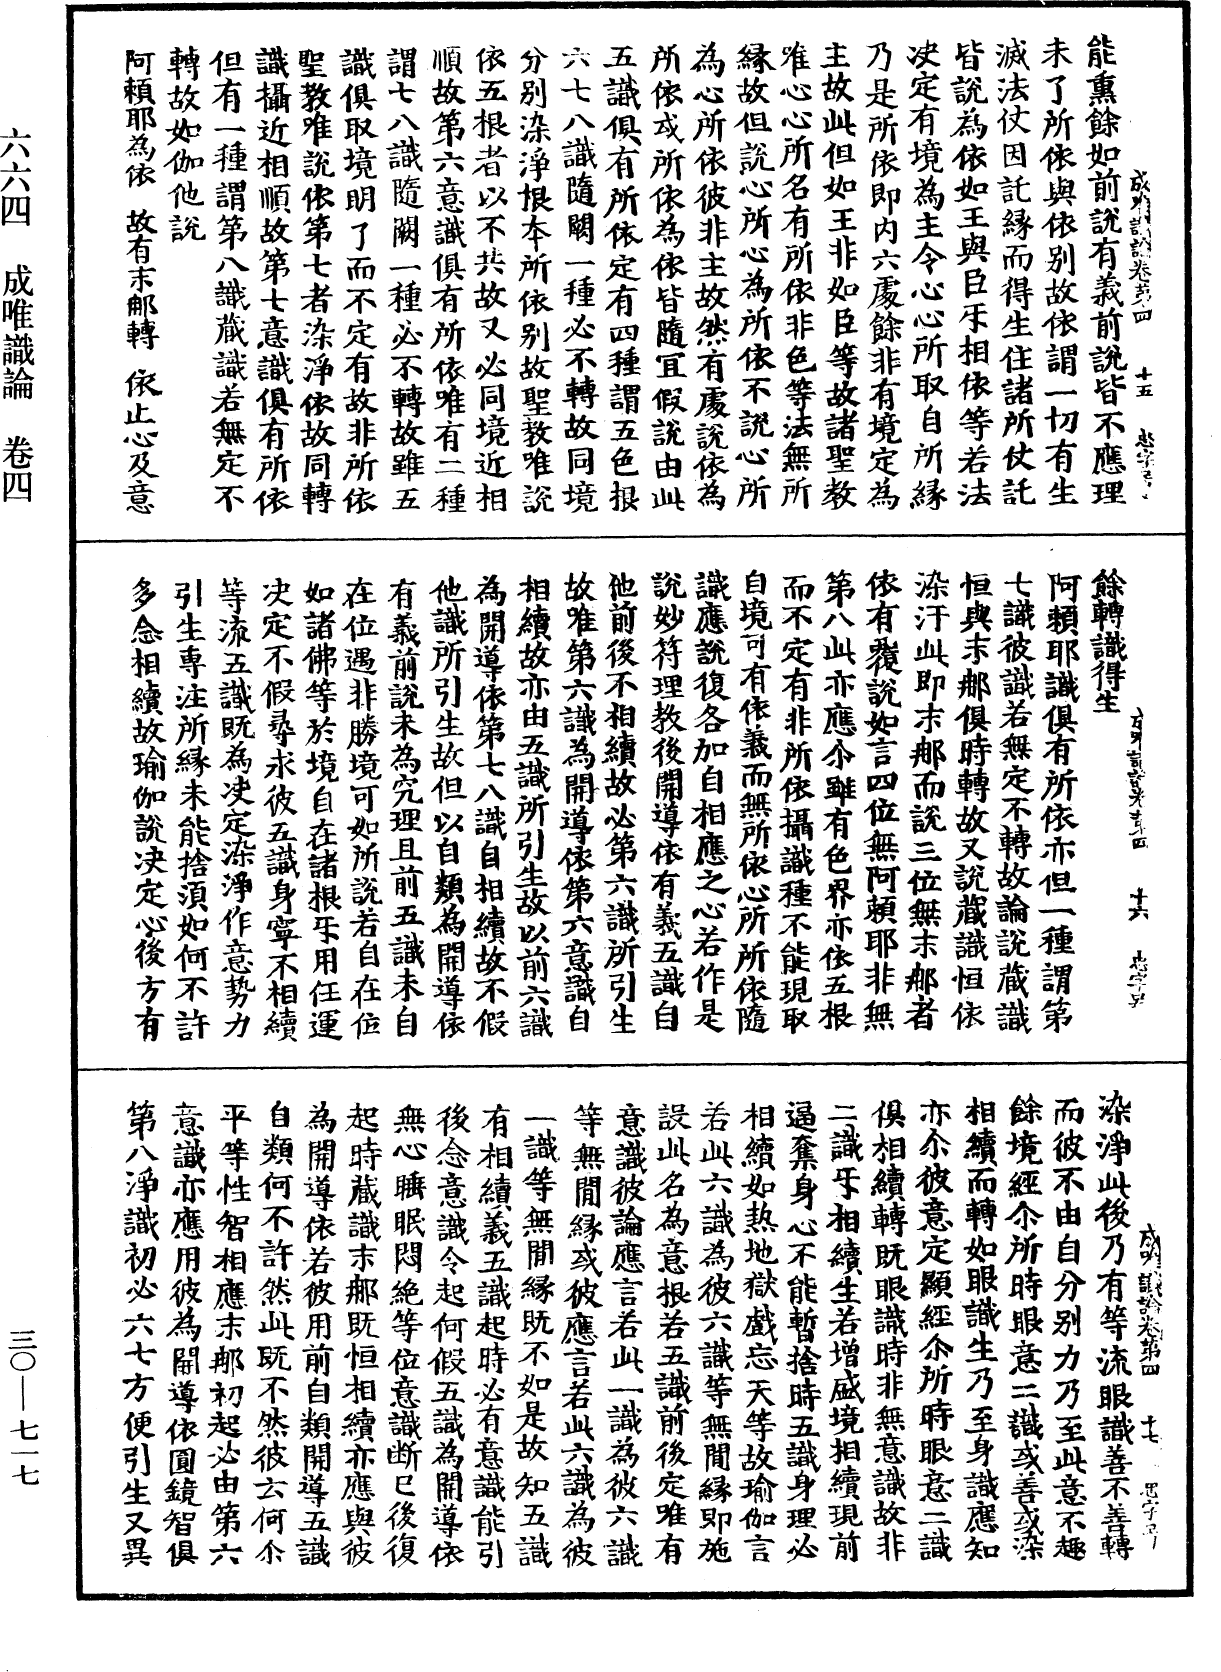 能熏餘如前說有義前說皆不應理
未了所依與依別故依謂一切有生
滅法仗因託緣而得生住諸所仗託
皆說為依如王與臣牙相依等若法
決定有境為主令心心所取自所緣
乃是所依即內六處餘非有境定為
主故此但如王非如臣等故諸聖教
唯心心所名有所依非色等法無所
緣故但說心所心為所依不說心所
為心所依彼非主故然有處說依為
所依或所依為依皆隨宜假說由此
五識俱有所依定有四種謂五色根
六七八識隨闕一種必不轉故同境
分別染淨根本所依別故聖教唯說
依五根者以不共故又必同境近相
順故第六意識俱有所依唯有二種
謂七八識隨闕一種必不轉故雖五
識俱取境明了而不定有故非所依
聖教唯說依第七者染淨依故同轉
識攝近相順故第七意識俱有所依
但有一種謂第八識藏識若無定不
轉故如伽他說
阿賴耶為依　故有末那轉　依止心及意
成唯識論卷第四　十五
餘轉識得生
阿賴耶識俱有所依亦但一種謂第
七識彼識若無定不轉故論說藏識
恒與末那俱時轉故又說藏識恒依
染汙此即末那而說三位無末那者
依有覆說如言四位無阿賴耶非無
第八此亦應尒雖有色界亦依五根
而不定有非所依攝識種不能現取
自境可有依義而無所依心所所依隨
識應說復各加自相應之心若作是
說妙符理教後開導依有義五識自
他前後不相續故必第六識所引生
故唯第六識為開導依第六意識自
相續故亦由五識所引生故以前六識
為開導依第七八識自相續故不假
他識所引生故但以自類為開導依
有義前說未為究理且前五識未自
在位遇非勝境可如所說若自在位
如諸佛等於境自在諸根牙用任運
決定不假尋求彼五識身寧不相續
等流五識既為決定染淨作意勢力
引生專注所緣未能捨須如何不許
多念相續故瑜伽說決定心後方有
成唯識論卷第四　十六
染淨此後乃有等流眼識善不善轉
而彼不由自分別力乃至此意不趣
餘境經尒所時眼意二識或善或染
相續而轉如眼識生乃至身識應知
亦尒彼意定顯經尒所時眼意二識
俱相續轉既眼識時非無意識故非
二識牙相續生若增盛境相續現前
逼奪身心不能暫捨時五識身理必
相續如熱地獄戲忘天等故瑜伽言
若此六識為彼六識等無間緣即施
設此名為意根若五識前後定唯有
意識彼論應言若此一識為彼六識
等無間緣或彼應言若此六識為彼
一識等無間緣既不如是故知五識
有相續義五識起時必有意識能引
後念意識令起何假五識為開導依
無心睡眠悶絕等位意識斷已後復
起時藏識末那既恒相續亦應與彼
為開導依若彼用前自類開導五識
自類何不許然此既不然彼云何尒
平等性智相應末那初起必由第六
意識亦應用彼為開導依圓鏡智俱
第八淨識初必六七方便引生又異
成唯識論卷第四　十七
六六四　成唯識論　卷四
三〇—七一七